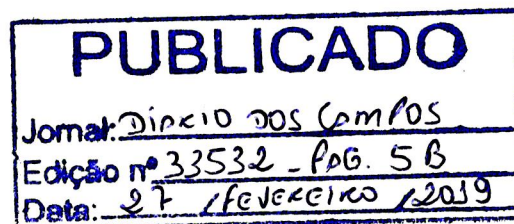 PUBLICADO
Jornal: DIÁRIO DOS CAMPOS
Edição nº 33532 - PÁG. 5 B
Data: 27 / FEVEREIRO / 2019